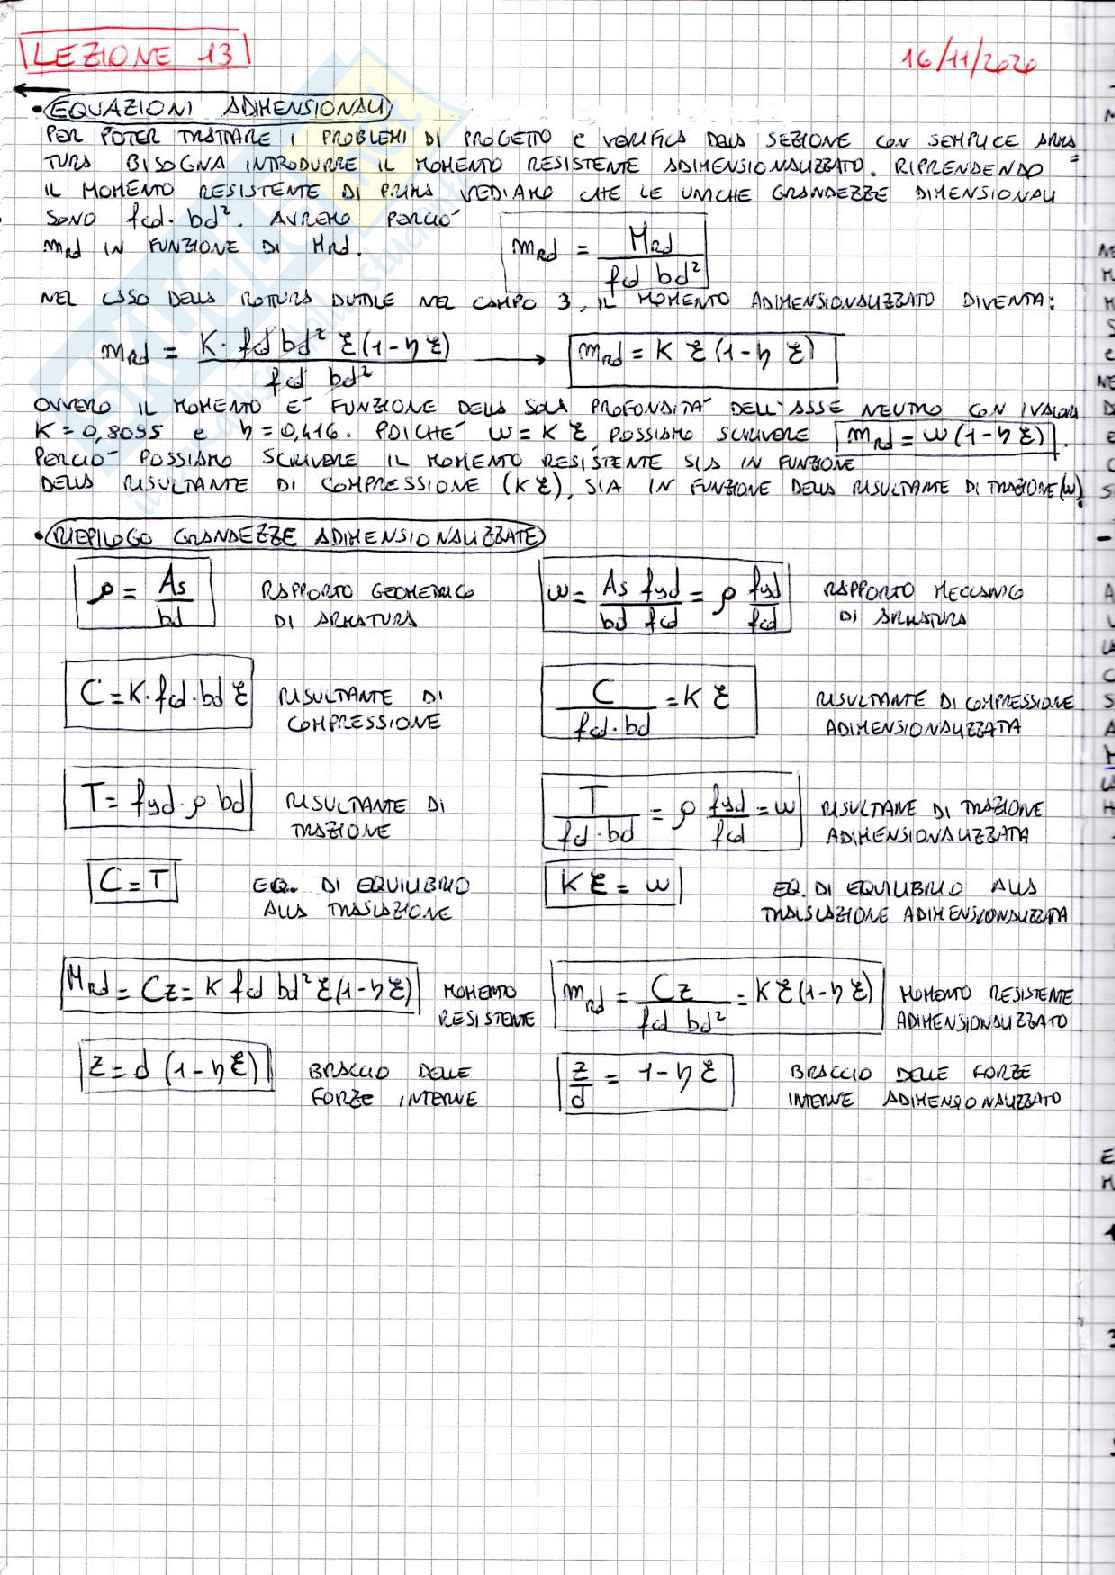 LEZIONE 13
16/11/2020
• EQUAZIONI ADIMENSIONALI
PER POTER TRATTARE I PROBLEMI DI PROGETTO E VERIFICA DELLA SEZIONE CON SEMPLICE ARMA=
TURA BISOGNA INTRODURRE IL MOMENTO RESISTENTE ADIMENSIONALIZZATO. RIPRENDENDO
IL MOMENTO RESISTENTE DI PRIMA VEDIAMO CHE LE UNICHE GRANDEZZE DIMENSIONALI
SONO fcd · bd². AVREMO PERCIÒ
mRd IN FUNZIONE DI MRd.
mRd = MRd / (fcd bd²)
NEL CASO DELLA ROTTURA DUTTILE NEL CAMPO 3, IL MOMENTO ADIMENSIONALIZZATO DIVENTA:
mRd = K · fcd bd² ξ(1-η ξ) / (fcd bd²) → mRd = K ξ (1-η ξ)
OVVERO IL MOMENTO È FUNZIONE DELLA SOLA PROFONDITÀ DELL'ASSE NEUTRO CON I VALORI
K = 0,8095 e η = 0,416. POICHÉ ω = K ξ, POSSIAMO SCRIVERE mRd = ω (1-η ξ).
PERCIÒ POSSIAMO SCRIVERE IL MOMENTO RESISTENTE SIA IN FUNZIONE
DELLA RISULTANTE DI COMPRESSIONE (K ξ), SIA IN FUNZIONE DELLA RISULTANTE DI TRAZIONE (ω).
• RIEPILOGO GRANDEZZE ADIMENSIONALIZZATE
ρ = As / bd RAPPORTO GEOMETRICO DI ARMATURA
ω = As fyd / (bd fcd) = ρ fyd / fcd RAPPORTO MECCANICO DI ARMATURA
C = K · fcd · bd ξ RISULTANTE DI COMPRESSIONE
C / (fcd · bd) = K ξ RISULTANTE DI COMPRESSIONE ADIMENSIONALIZZATA
T = fyd · ρ bd RISULTANTE DI TRAZIONE
T / (fcd · bd) = ρ fyd / fcd = ω RISULTANE DI TRAZIONE ADIMENSIONALIZZATA
C = T EQ. DI EQUILIBRIO ALLA TRASLAZIONE
K ξ = ω EQ. DI EQUILIBRIO ALLA TRALSLAZIONE ADIMENSIONALIZZATA
MRd = Cz = K fcd bd² ξ(1-η ξ) MOMENTO RESISTENTE
mRd = Cz / (fcd bd²) = K ξ (1-η ξ) MOMENTO RESISTENTE ADIMENSIONALIZZATO
z = d (1-η ξ) BRACCIO DELLE FORZE INTERNE
z / d = 1-η ξ BRACCIO DELLE FORZE INTERNE ADIMENSIONALIZZATO